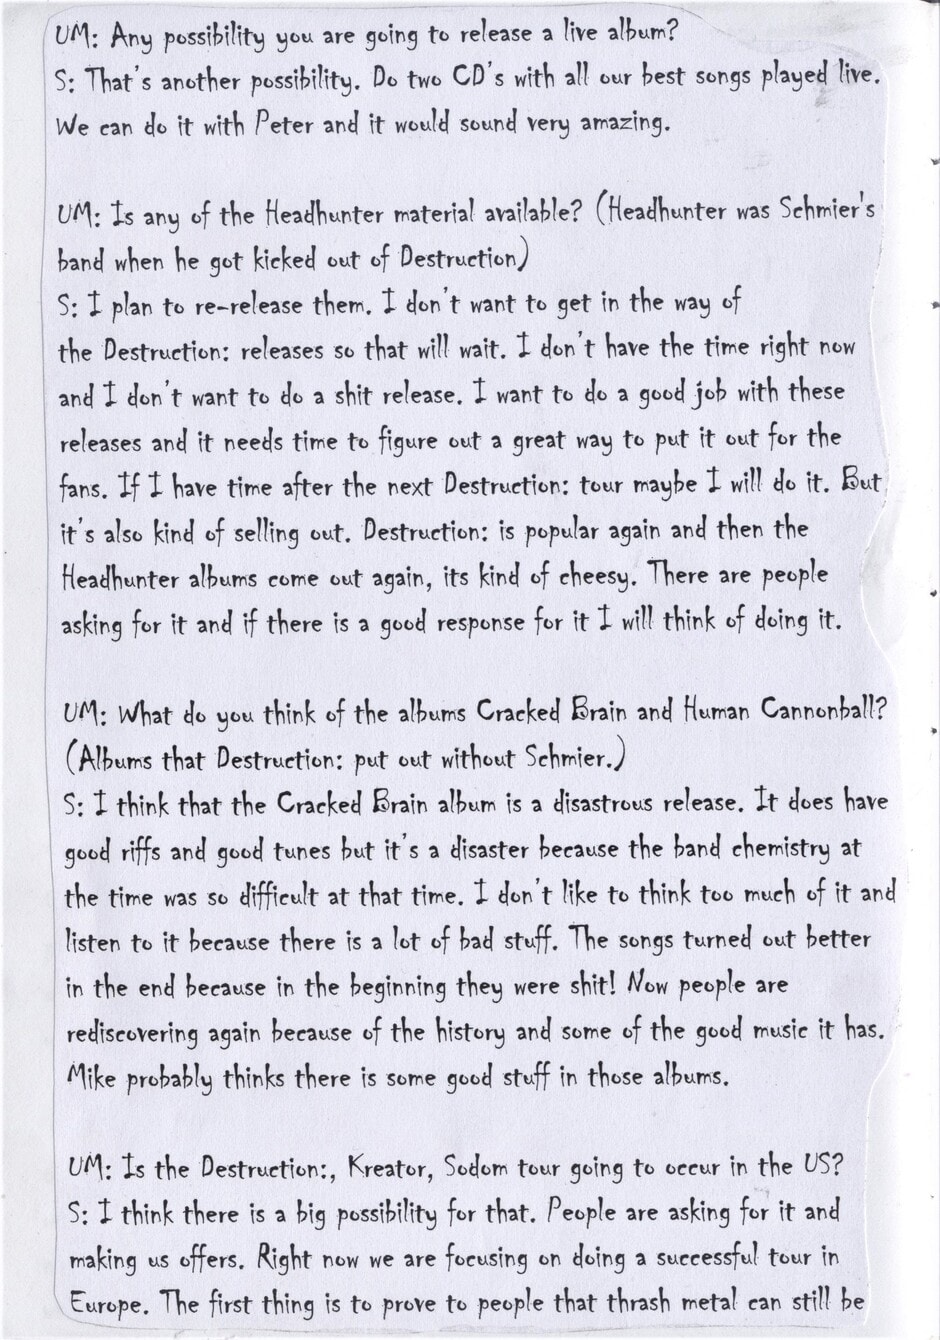 UM: Any possibility you are going to release a live album?
S: That's another possibility. Do two CD's with all our best songs played live.
We can do it with Peter and it would sound very amazing.
UM: Is any of the Headhunter material available? (Headhunter was Schmier's
band when he got kicked out of Destruction)
S: I plan to re-release them. I don't want to get in the way of
the Destruction: releases so that will wait. I don't have the time right now
and I don't want to do a shit release. I want to do a good job with these
releases and it needs time to figure out a great way to put it out for the
fans. If I have time after the next Destruction: tour maybe I will do it. But
it's also kind of selling out. Destruction: is popular again and then the
Headhunter albums come out again, its kind of cheesy. There are people
asking for it and if there is a good response for it I will think of doing it.
UM: What do you think of the albums Cracked Brain and Human Cannonball?
(Albums that Destruction: put out without Schmier.)
S: I think that the Cracked Brain album is a disastrous release. It does have
good riffs and good tunes but it's a disaster because the band chemistry at
the time was so difficult at that time. I don't like to think too much of it and
listen to it because there is a lot of bad stuff. The songs turned out better
in the end because in the beginning they were shit! Now people are
rediscovering again because of the history and some of the good music it has.
Mike probably thinks there is some good stuff in those albums.
UM: Is the Destruction:, Kreator, Sodom tour going to occur in the US?
S: I think there is a big possibility for that. People are asking for it and
making us offers. Right now we are focusing on doing a successful tour in
Europe. The first thing is to prove to people that thrash metal can still be